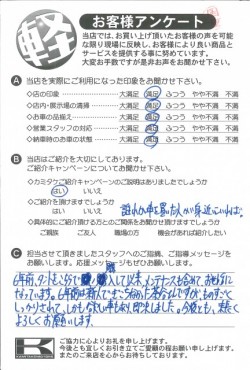 軽
お客様アンケート
当店では、お買い上げ頂いたお客様の声を可能
な限り現場に反映し、お客様により良い商品と
サービスを提供する事に努めています。
大変お手数ですが是非お声をお聞かせ下さい。
A 当店を実際にご利用になった印象をお聞かせ下さい。
◇店の印象 大満足 満足 ふつう やや不満 不満
◇店内・展示場の清掃 大満足 満足 ふつう やや不満 不満
◇お車の品揃え 大満足 満足 ふつう やや不満 不満
◇営業スタッフの対応 大満足 満足 ふつう やや不満 不満
◇納車時のお車の状態 大満足 満足 ふつう やや不満 不満
B 当店はご紹介を大切にしております。
ご紹介キャンペーンについてお聞かせ下さい。
◇カミタケご紹介キャンペーンのご説明はありましたでしょうか
はい いいえ
◇ご紹介を頂けますでしょうか
はい いいえ
◇具体的にご紹介頂ける方とのご関係をお聞かせ頂けますでしょうか
ご親族 ご友人 職場の方 機会があれば紹介したい
C 担当させて頂きましたスタッフへのご指摘、ご指導メッセージを
お願いします。応援メッセージもぜひお願いします。
になっています。
しっかりされて、
よろしくお願いします。
K
ご協力に心よりお礼を申し上げます。
今後とも宜しくお引き立てご愛顧の程お願い申し上げます。
またのご来店を心からお待ちしております。